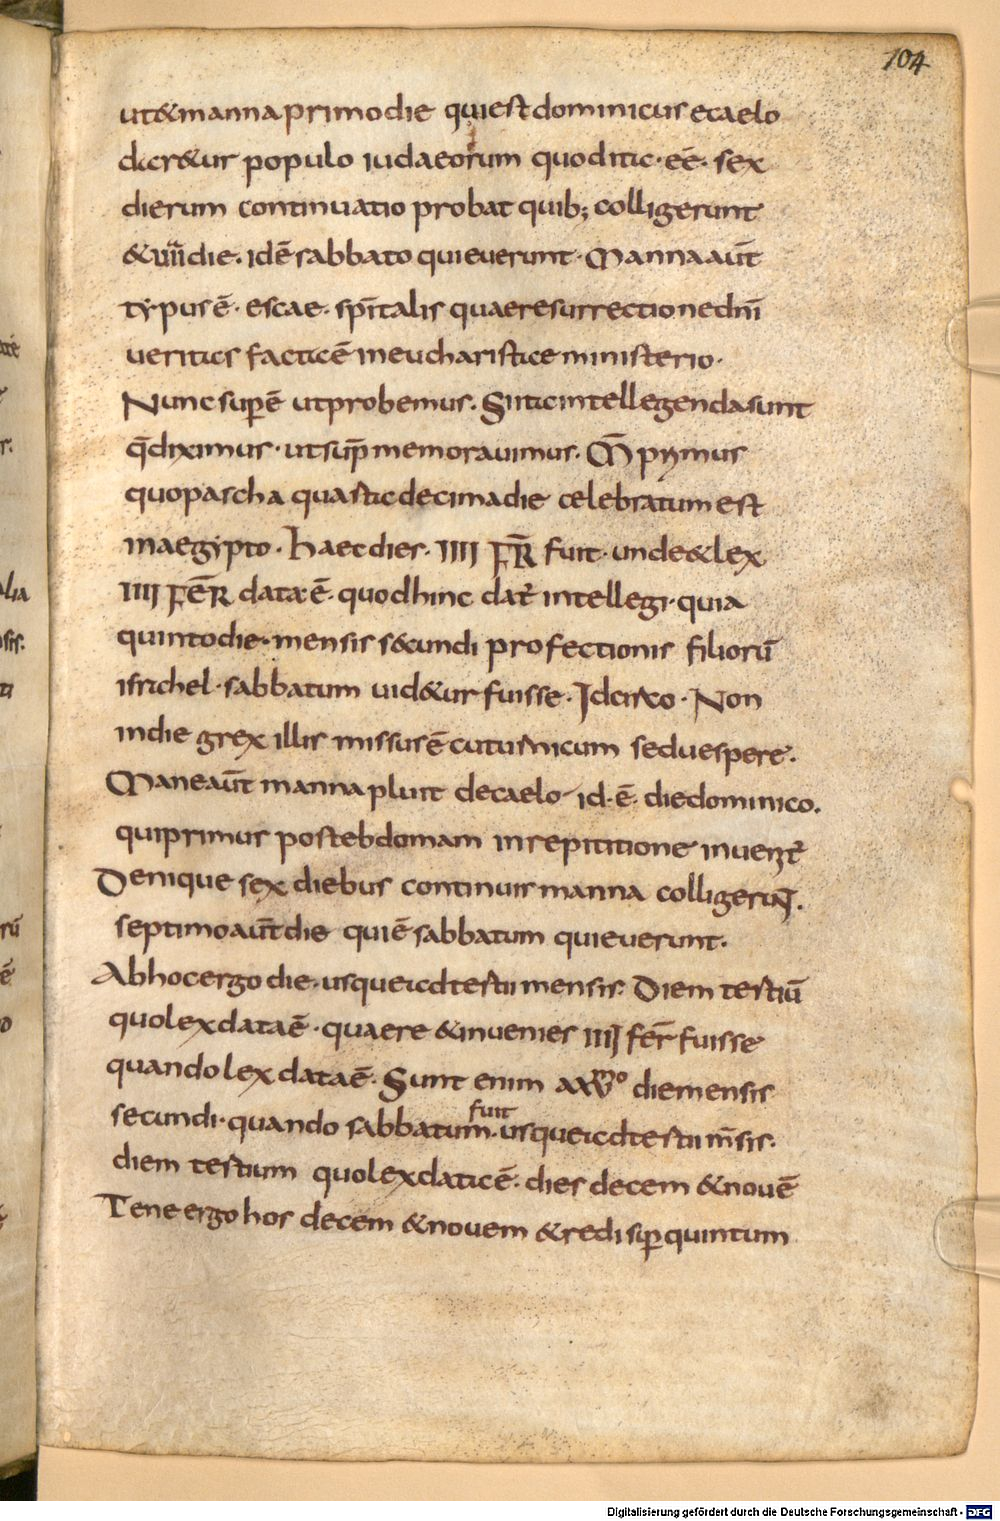 104
ut&manna primo die qui est dominicus e caelo
dar&ur populo iudaeorum quod ita·eē· sex
dierum continuatio probat quib; colligerunt
&uii die· idē sabbato quieuerunt· Manna aūt
typus ē· escae· spītalis quae resurrectione dn̄i
ueritas facta ē in eucharistiae ministerio·
Nunc sup̄ē ut probemus· Si ita intellegenda sunt
q̄ diximus· ut sup̄ memorauimus· M̄ primus
quo pascha quarta decima die celebratum est
in aegypto· haec dies· IIII FR̄ fuit· unde & lex
IIII FĒR data· ē· quod hinc dat̄ intellegi· quia
quinto die· mensis s&cundi profectionis filiorū
israhel· sabbatum uid&ur fuisse· Idcirco· Non
in die grex illis missus ē coturnicum sed uespere·
Mane aūt manna pluit de caelo id· ē· die dominico·
qui primus post ebdomam in repititione inuenit̄
Denique sex diebus continuis manna colligerunt·
septimo aūt die qui ē sabbatum quieuerunt·
Ab hoc ergo die· usque ad tertii mensis· Diem tertiū
quo lex data ē· quaere & inuenies IIII fer̄ fuisse
quando lex data ē· Sunt enim a xvmo die mensis
secundi· quando sabbatum· fuit usque ad tertii m̄sis·
diem tertium quo lex data ē· dies decem & nouē
Tene ergo hos decem & nouem & redi sup̄ quintum
alia
Digitalisierung gefördert durch die Deutsche Forschungsgemeinschaft - DFG